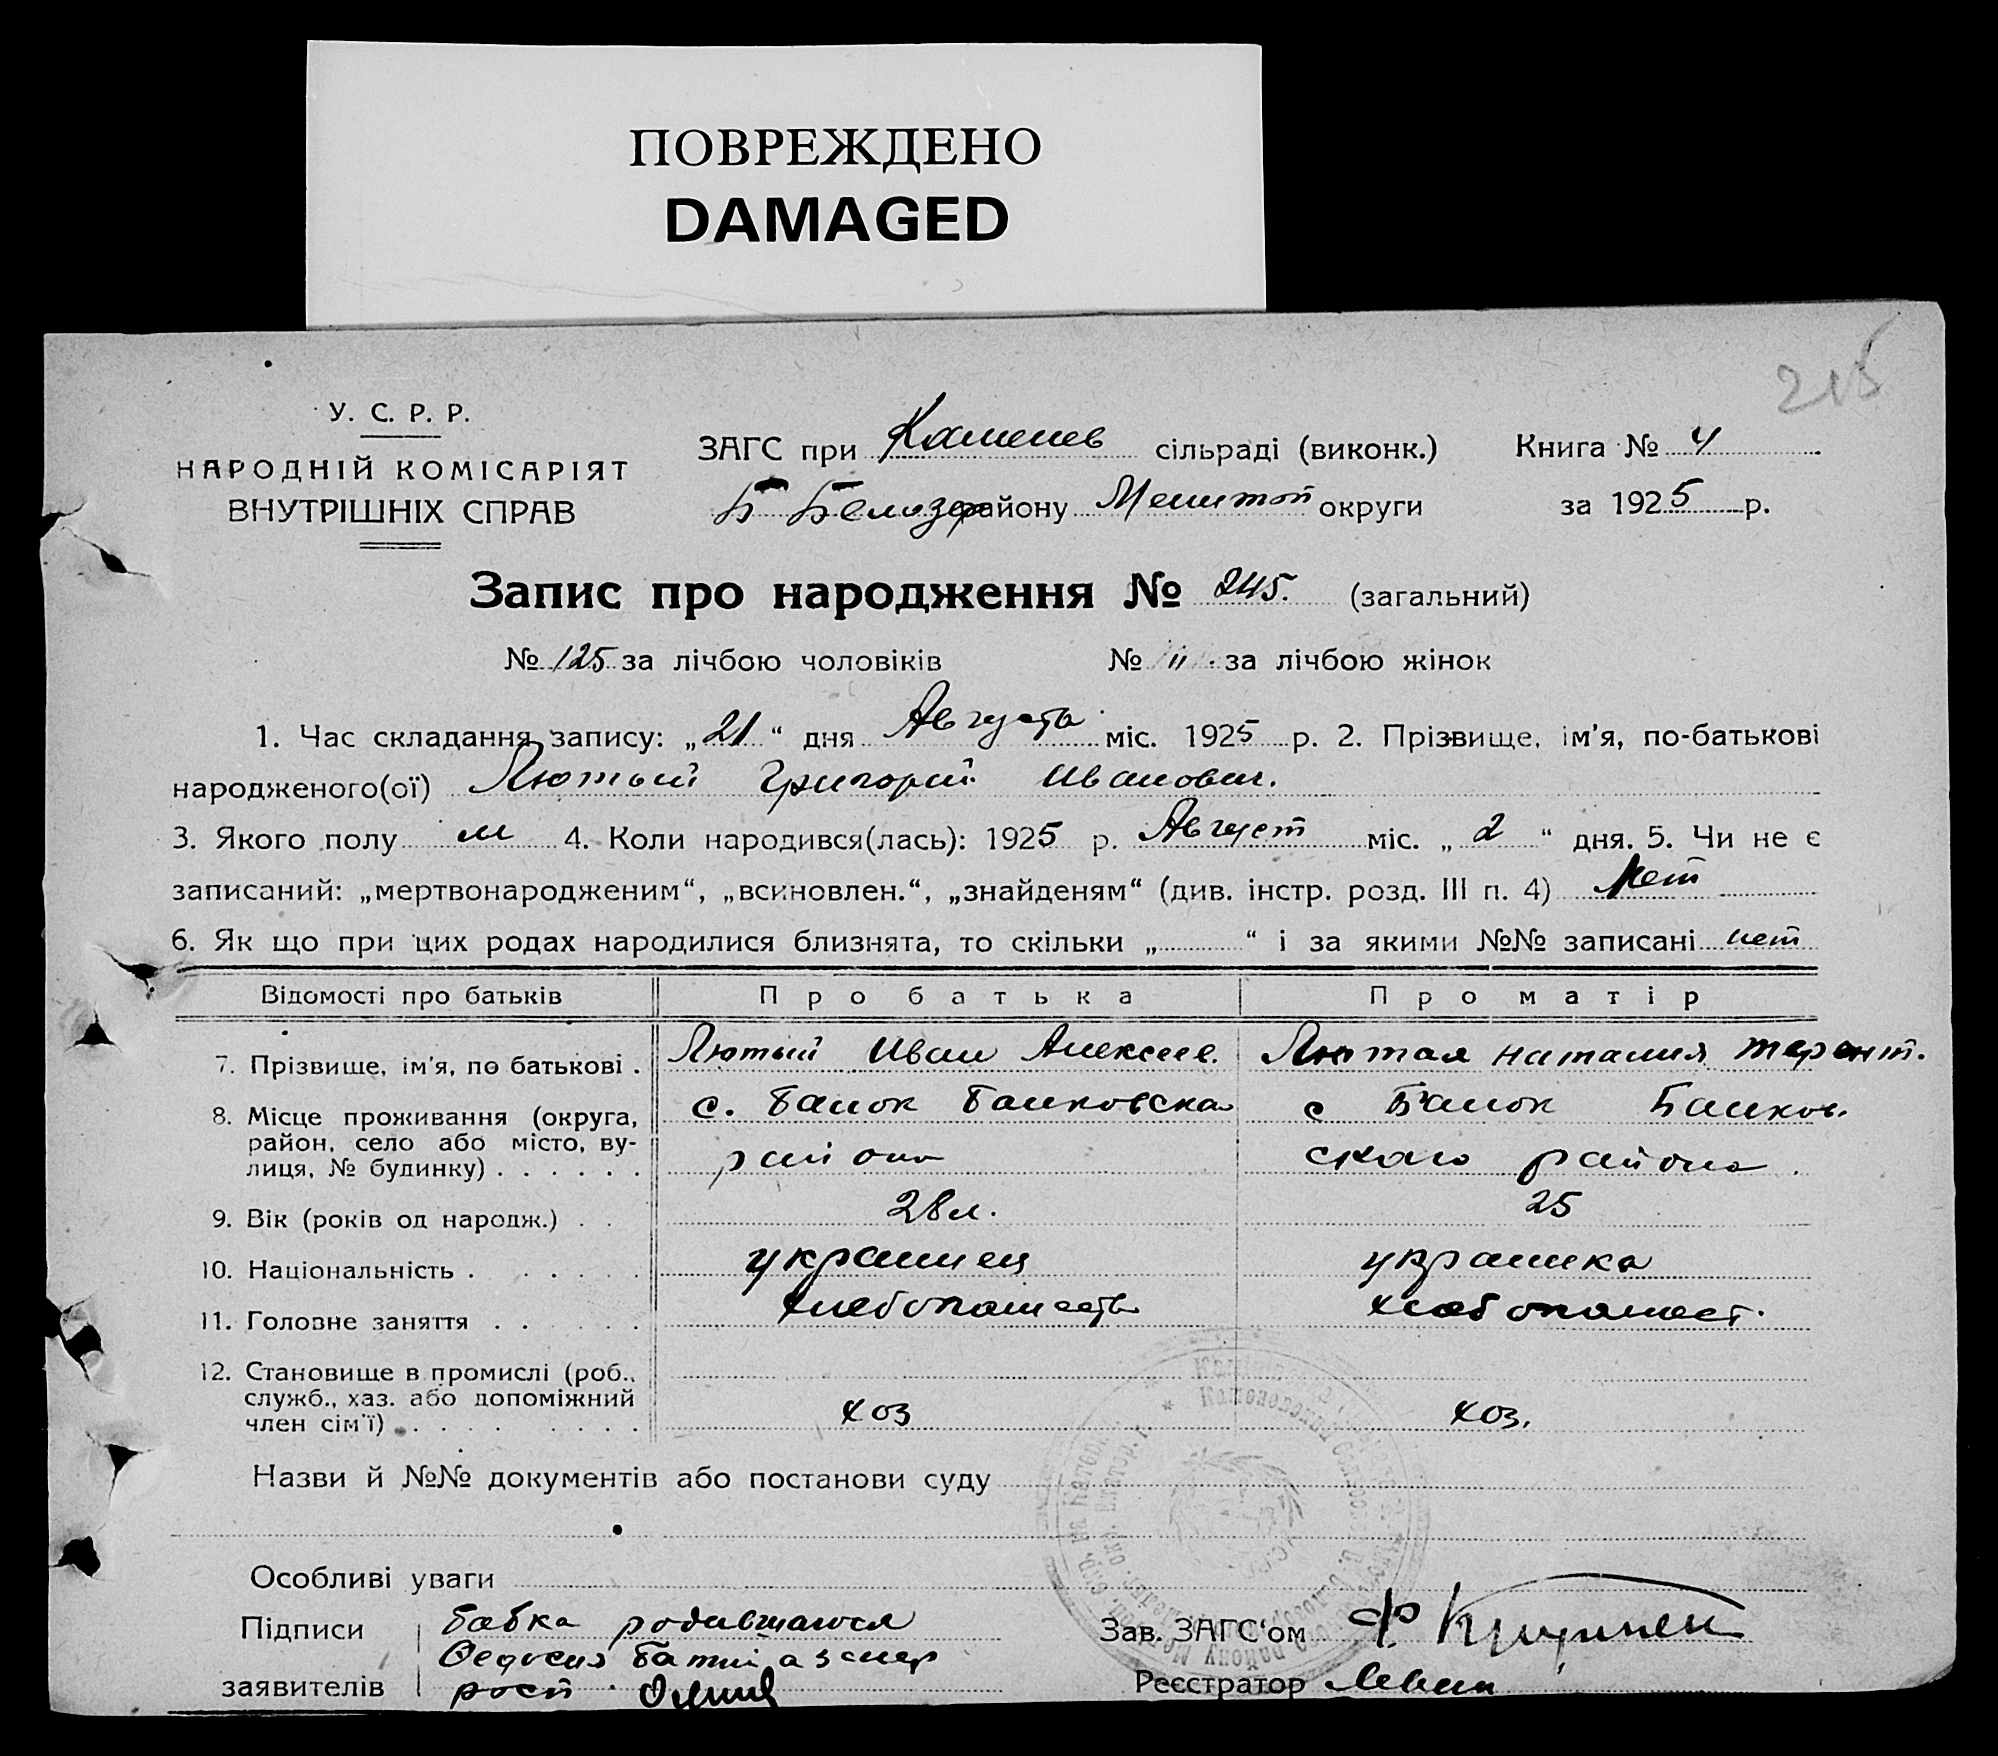 ПОВРЕЖДЕНО
DAMAGED
215
У. С. Р. Р.
НАРОДНІЙ КОМІСАРІЯТ
ВНУТРІШНІХ СПРАВ
ЗАГС при Каменев сільраді (виконк.) Книга № 4
Б Белозер району Мелитоп округи за 1925 р.
Запис про народження № 245. (загальний)
№ 125 за лічбою чоловіків № " за лічбою жінок
1. Час складання запису: „21“ дня Августа міс. 1925 р. 2. Прізвище, ім’я, по-батькові
народженого(ої) Лютый Григорий Иванович.
3. Якого полу м 4. Коли народився(лась): 1925 р. Август міс. „2“ дня. 5. Чи не є
записаний: „мертвонародженим“, „всиновлен.“, „знайденям“ (див. інстр. розд. III п. 4) Нет
6. Як що при цих родах народилися близнята, то скільки „ “ і за якими №№ записані нет
Відомості про батьків Про батька Про матір
7. Прізвище, ім’я, по батькові . Лютый Иван Алексее. Лютая Наталия Терент.
8. Місце проживання (округа, с. Балок Балковска с Балок Балков.
район, село або місто, ву-
лиця, № будинку) . . . . . . района скаго района
9. Вік (років од народж.) . . 28 л. 25
10. Національність . . . . . . украинец украинка
11. Головне заняття . . . . . . хлебопашеств хлебопашест.
12. Становище в промислі (роб.,
служб., хаз. або допоміжний
член сім’ї) . . . . . . . . хоз хоз.
Назви й №№ документів або постанови суду
Особливі уваги
Підписи бабка родившагося Зав. ЗАГС‘ом
заявителів Реєстратор Левин